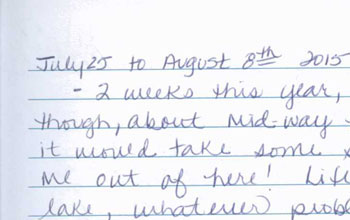 July 25 to August 8th 2015
- 2 weeks this year,
though, about mid-way
it would take some
me out of here! Life
lake, whatever probl